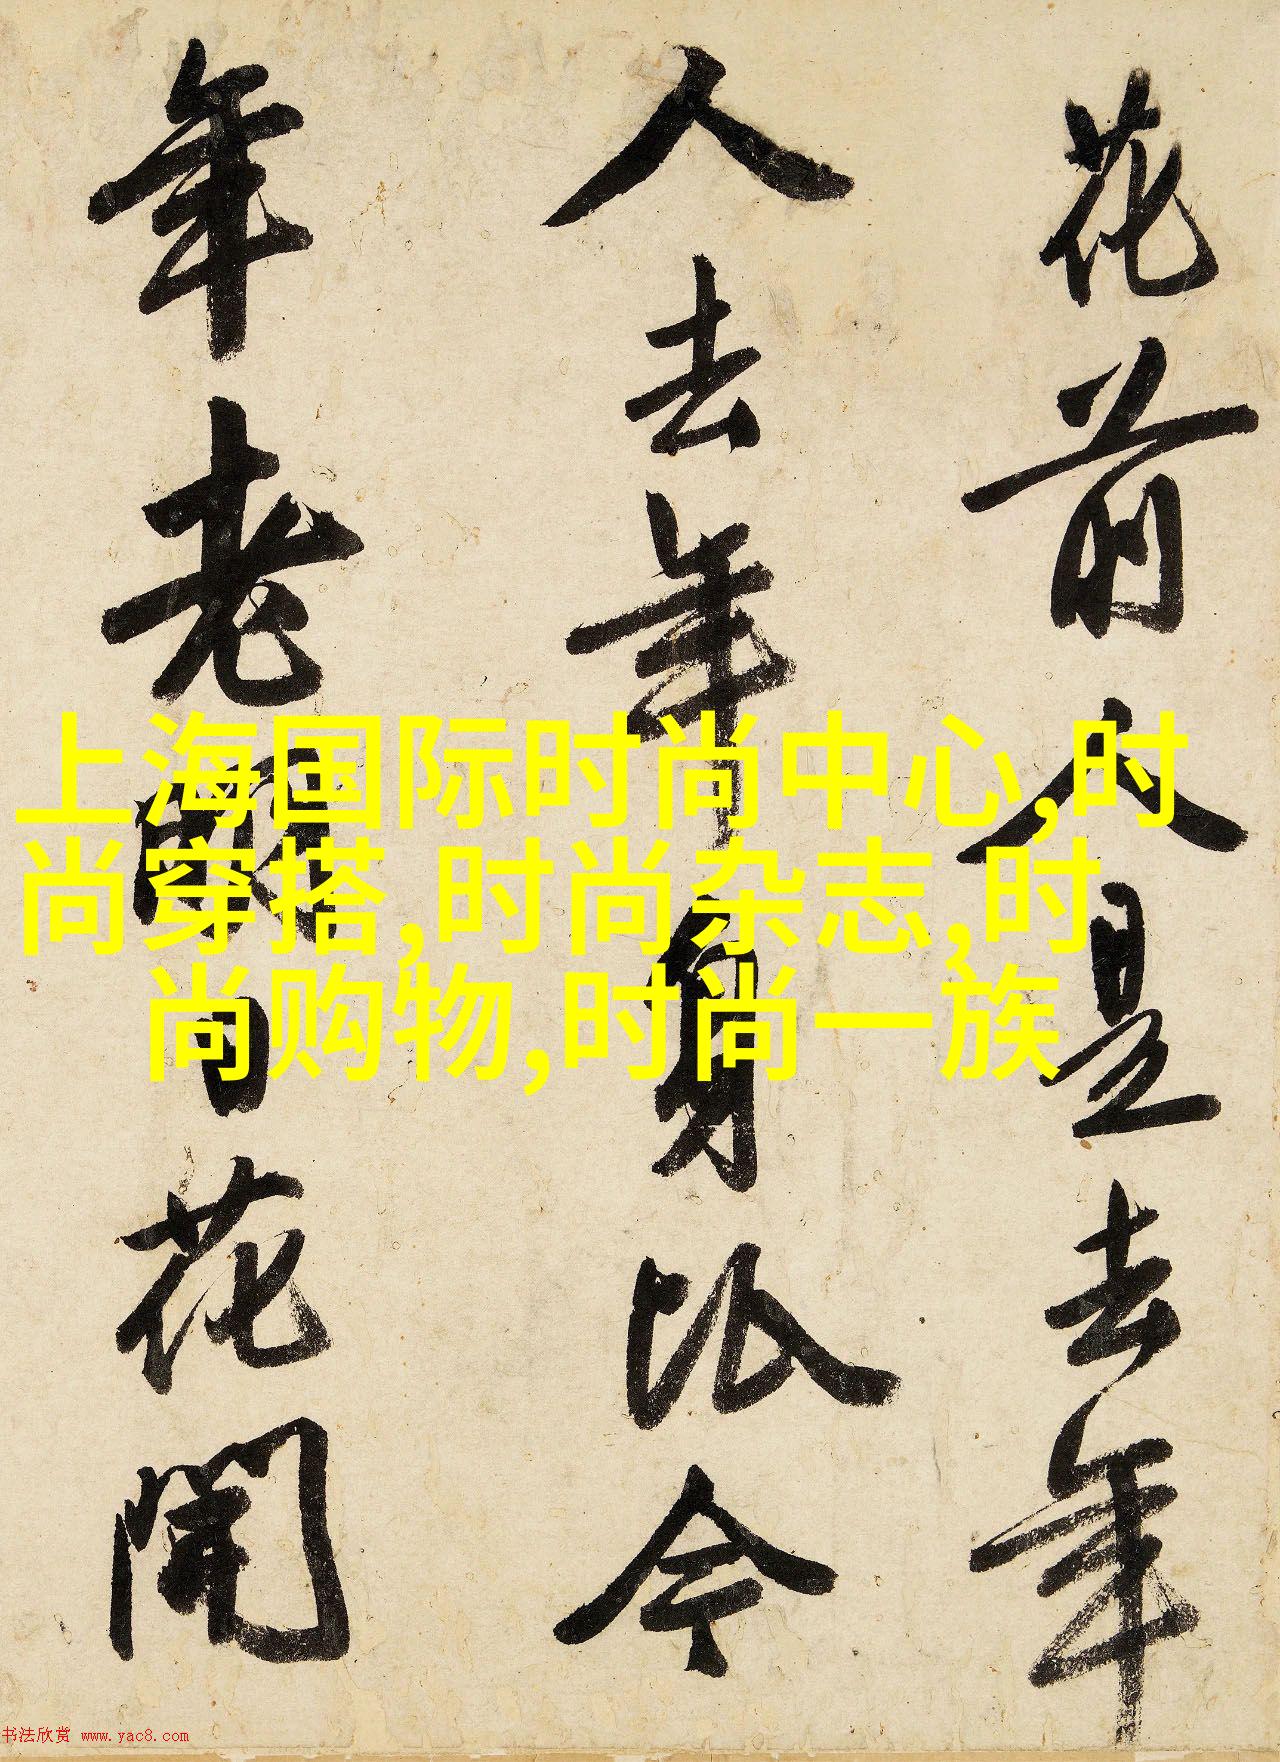 花前人是去年
人去年身比今
年老日花開
上海国际时尚中心,时
尚穿搭,时尚杂志,时
尚购物,时尚一族
书法欣赏 www.yac8.com